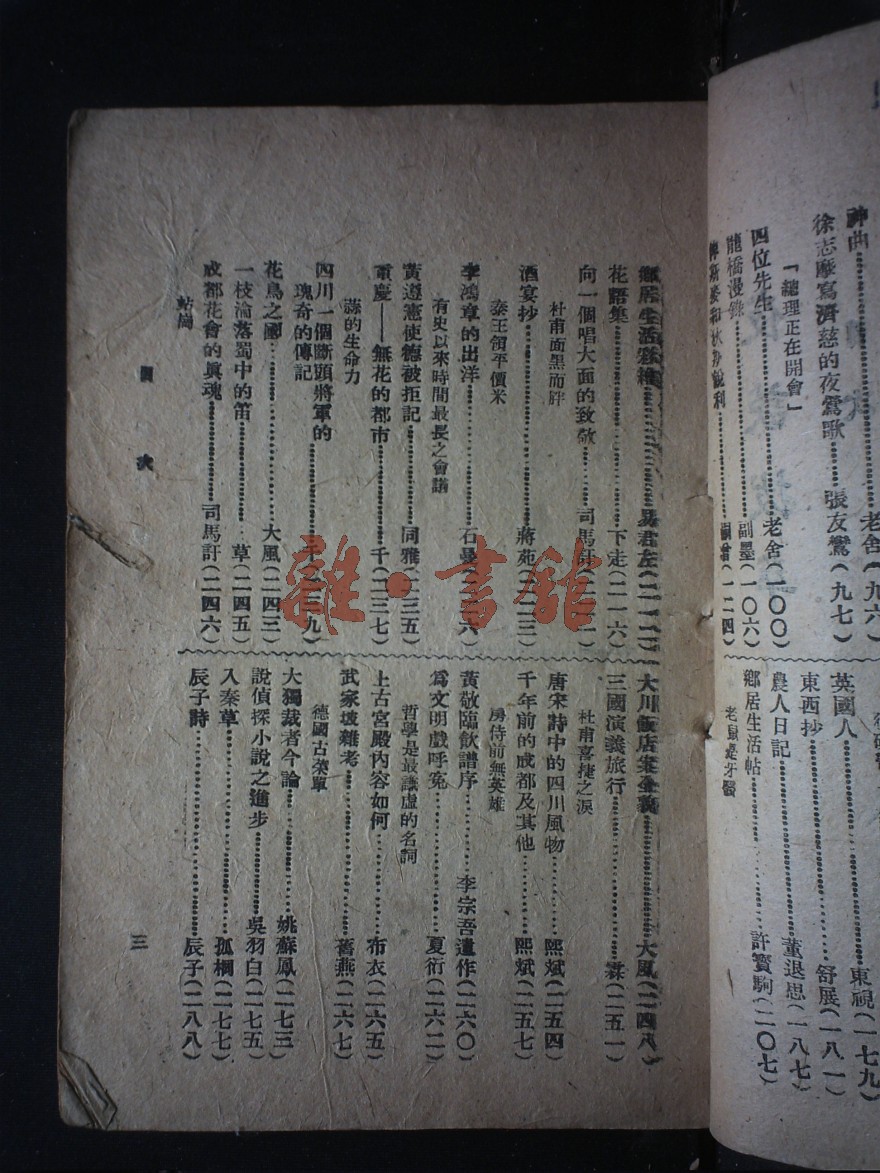 神曲……老舍(九六)
徐志摩寫濟慈的夜鶯歌……張友鸞(九七)
「總理正在開會」
四位先生……老舍(一〇〇)
龍橋漫錄……副墨(一〇六)
英國人……東視(一七九)
東西抄……舒展(一八一)
農人日記……董退思(一八七)
鄉居生活帖……許寶駒(二〇七)
老鼠是牙醫
鄉居生活……易君左(二一二)
花語集……下走(二一六)
向一個唱大面的致敬……司馬訏
杜甫面黑而胖
酒宴抄……蔣苑(二二三)
秦王領平價米
李鴻章的出洋……石曼
有史以來時間最長之會議
黃遵憲使德被拒記……同雅(二三五)
重慶——無花的都市……千(二三七)
蒜的生命力
四川一個斷頭將軍的
瑰奇的傳記……(二三九)
花鳥之國……大風(二四三)
一枝淪落蜀中的笛……草(二四五)
成都花會的輿魂……司馬訏(二四六)
站崗
大川飯店案全義……大風(二四八)
三國演義旅行……霖(二五一)
杜甫喜捷之淚
唐宋詩中的四川風物……熙斌(二五四)
千年前的成都及其他……熙斌(二五七)
房侍前無英雄
黃敬臨飲譜序……李宗吾遺作(二六〇)
爲文明戲呼冤……夏衍(二六二)
哲學是最謙虛的名詞
上古宮殿內容如何……布衣(二六五)
武家坡雜考……舊燕(二六七)
德國古菜單
大獨裁者今論……姚蘇鳳(二七三)
說偵探小說之進步……吳羽白(二七五)
入秦草……孤桐(二七七)
辰子詩……辰子(二八八)
目次
三
雜·書館